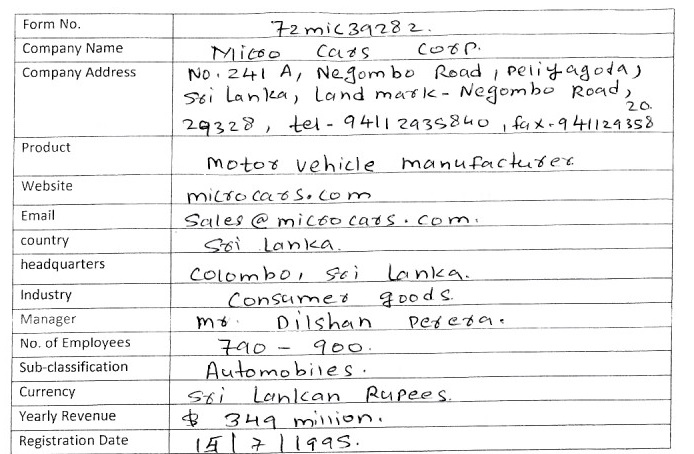 Form No. 72mic39282.
Company Name Micro Cars Corp.
Company Address No. 241 A, Negombo Road, Peliyagoda,
Sri Lanka, Land mark - Negombo Road,
29328, tel - 94112935840, fax - 941129358
20.
Product Motor vehicle manufacturer
Website microcars.com
Email Sales@microcars.com.
country Sri Lanka.
headquarters Colombo, Sri Lanka.
Industry Consumer goods.
Manager Mr. Dilshan Perera.
No. of Employees 790 - 900.
Sub-classification Automobiles.
Currency Sri Lankan Rupees.
Yearly Revenue $ 349 million.
Registration Date 15/7/1995.